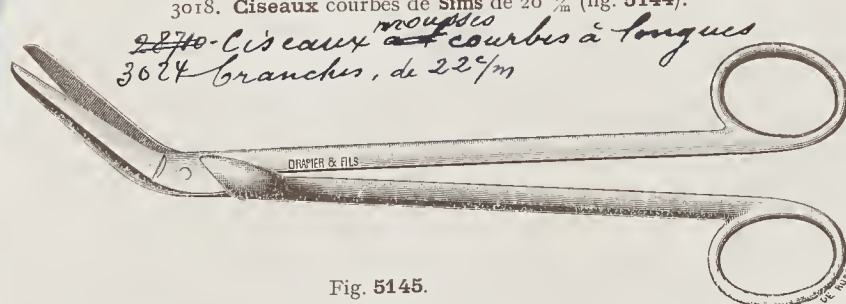 3018. Ciseaux courbes de Sims de 20 c/m (fig. 5144).
mousses
28710 - Ciseaux et courbes à longues
3024 branches, de 22 c/m
DRAPIER & FILS
Fig. 5145.